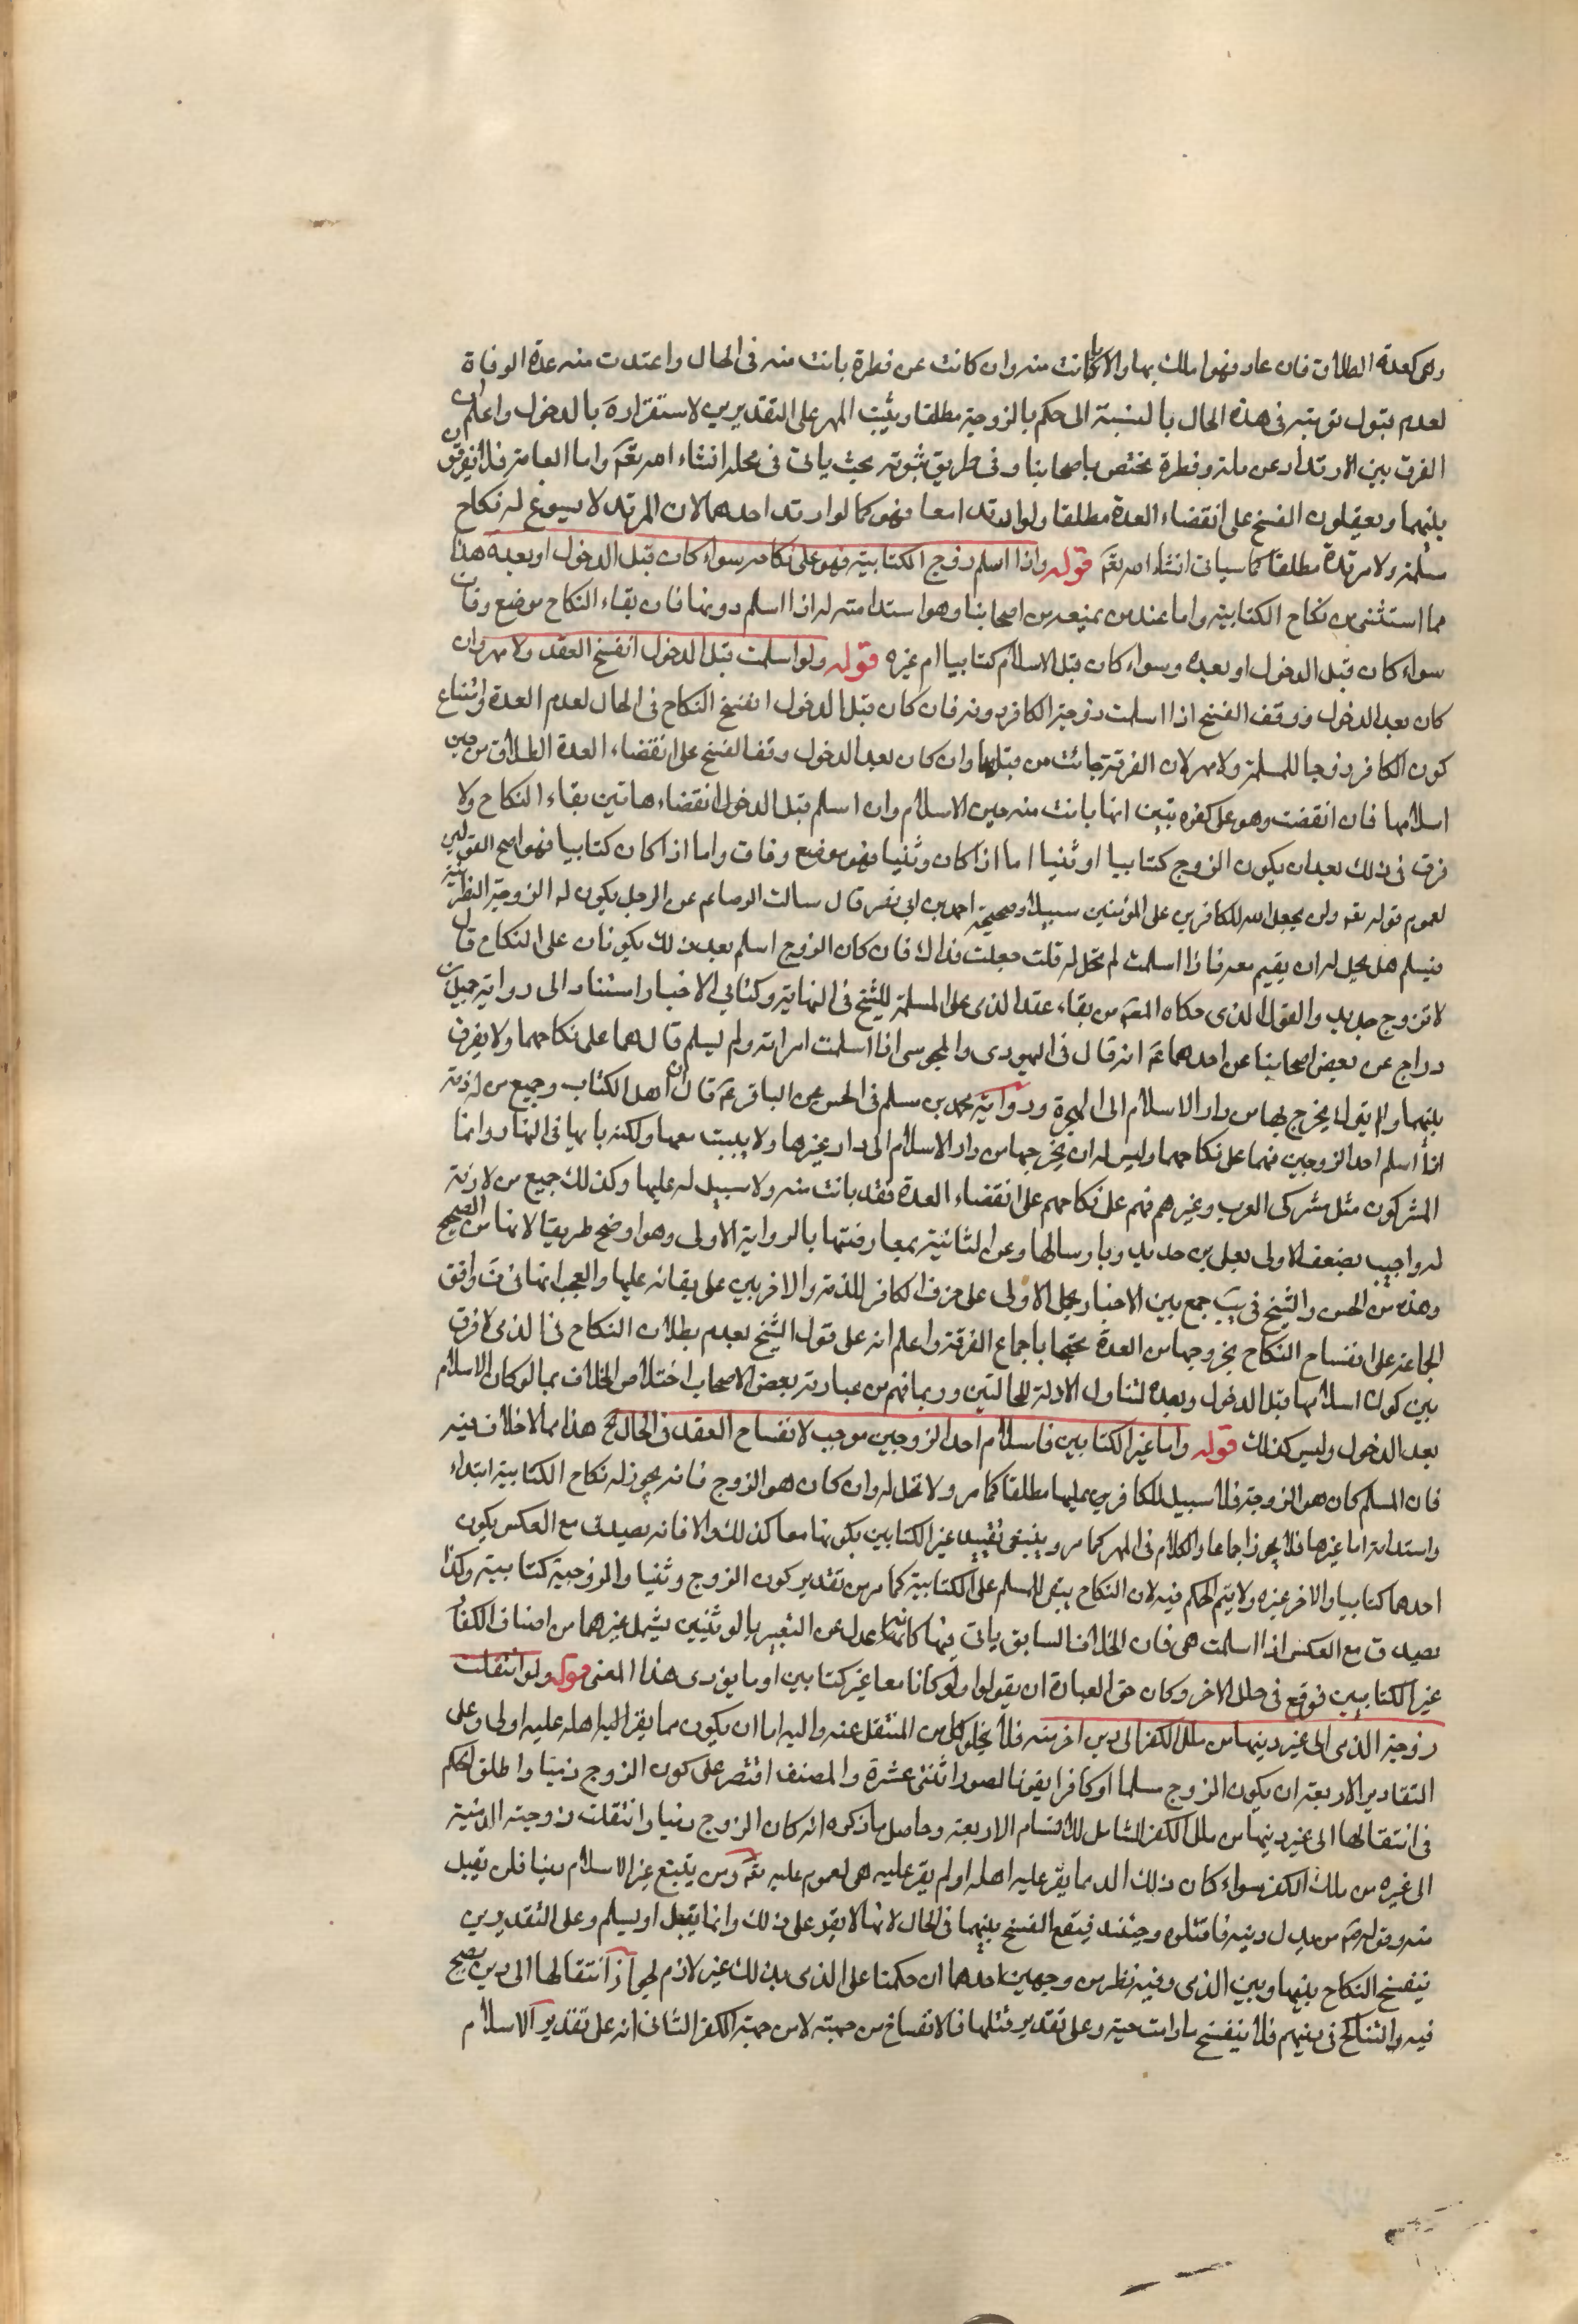 وهى كعدة الطلاق فان عاد فهو املك بها والا بانت منه وان كانت عن فطرة بانت منه فى الحال واعتدت منه عدة الوفاة
لعدم قبول توبته فى هذه الحال بالنسبة الى حكم بالزوجية مطلقا ويثبت المهر على التقديرين لاستقراره بالدخول واعلم ان
الفرق بين الارتداد عن ملة وفطرة مختص باصحابنا وفى طريق ثبوته بحث ياتى فى محله انشاء الله تعم واما العامة فلا يفرقون
بينهما ويعقلون الفسخ على انقضاء العدة مطلقا ولو ارتدا معا فهو كما لو ارتد احدهما لان المرتد لا يسوغ له نكاح
مسلمة ولا مرتدة مطلقا كما سياتى انشاء الله تعم قوله واذا اسلم زوج الكتابية فهو على نكاحه سواء كان قبل الدخول او بعده هذا
مما استثنى من نكاح الكتابية واما عند من يمنعه من اصحابنا وهو استدامته له اذا اسلم دونها فان بقاء النكاح موضع وفاق
سواء كان قبل الدخول او بعده وسواء كان قبل الاسلام كتابيا ام غيره قوله ولو اسلمت قبل الدخول انفسخ العقد ولا مهر وان
كان بعد الدخول ووقف الفسخ اذا اسلمت زوجة الكافر دونه فان كان قبل الدخول انفسخ النكاح فى الحال لعدم العدة وامتناع
كون الكافر زوجا للمسلمة ولا مهر لان الفرقة جائت من قبلها وان كان بعد الدخول وقف الفسخ على انقضاء العدة الطلاق من حين
اسلامها فان انقضت وهو على كفره تبين انها بانت منه حين الاسلام وان اسلم قبل الدخول انقضاءها تبين بقاء النكاح ولا
فرق فى ذلك بعد ان يكون الزوج كتابيا او ثنيا اما اذا كان وثنيا فهو موضع وفاق واما اذا كان كتابيا فهو اصح القولين
لعموم قوله تعه ولن يجعل الله للكافرين على المؤمنين سبيلا وصحيحة احمد بن ابى نصر قال سالت الرضا عم عن الرجل يكون له الزوجة النصرانية
فيسلم هل يحل له ان يقيم معه فاذا اسلمت لم تحل له قلت جعلت فداك فان كان الزوج اسلم بعد ذلك يكونان على النكاح قال
لا تزوج جديد والقول الذى حكاه المصَ من بقاء عقد الذى على المسلمة للشيخ فى النهاية وكتابى الاخبار استنادا الى رواية جميل بن
دراج عن بعض اصحابنا عن احدهما عَ انه قال فى اليهودى والمجوسى اذا اسلمت امراته ولم يسلم قال هما على نكاحهما ولا يفرق
بينهما ولا يترك يخرج بها من دار الاسلام الى الهجرة ورواية محمد بن مسلم فى الحسن عن الباقر عَ قال ان اهل الكتاب وجميع من له ذمة
اذا اسلم احد الزوجين فهما على نكاحهما وليس له ان يخرجها من دار الاسلام الى دار غيرها ولا يبيت معها ولكنه ياتيها فى النهار واما
المشركون مثل مشركى العرب وغيرهم فهم على نكاحهم على انقضاء العدة فقد بانت منه ولا سبيل له عليها وكذلك جميع من لا ذمة
له واجيب بضعف الاولى بعلى بن حديد وبارسالها وعن الثانية بمعارضتها بالرواية الاولى وهو اوضح طريقا لانها من الصحيح
وهذه من الحسن والشيخ فى يب جمع بين الاخبار بحمل الاولى على خرق الكافر للذمة والاخريين على بقائه عليها والعجب انه فى ف وافق
الجماعة على انفساخ النكاح بخروجها من العدة محتجا باجماع الفرقة واعلم انه على قول الشيخ بعدم بطلان النكاح فى الذمى لا فرق
بين كون اسلامها قبل الدخول وبعده لتناول الادلة للحالتين وربما فهم من عبارته بعض الاصحاب اختلاص الخلاف بما لو كان الاسلام
بعد الدخول وليس كذلك قوله واما غير الكتابيين فاسلام احد الزوجين موجب لانفساح العقد فى الحال الخ هذا مما لا خلاف فيه
فان المسلم كان هو الزوجة فلا سبيل للكافرين عليها مطلقا كما مر ولا تحل له وان كان هو الزوج فانه يجوز له نكاح الكتابية ابتداء
واستدامة اما غيرها فلا يجوز اجماعا والكلام فى المهر كما مر وينبغى تقييد غير الكتابين بكونهما معا كذلك والا فانه يصدق مع العكس بكون
احدهما كتابيا والاخر غيره ولا يتم الحكم فيه لان النكاح يبقى للمسلم على الكتابية كما مر من تقدير كون الزوج وثنيا والزوجية كتابية وكذا
يصدق مع العكس اذا اسلمت هى فان الخلاف السابق ياتى فيها كانه عدل عن التعبير بالوثنيين يشمل غيرهما من اصناف الكفار
غير الكتابيين فوقع فى خلل الاخر وكان حق العبارة ان يقول او لو كانا معا غير كتابين او ما يؤدى هذا المعنى قوله ولو انتقلت
زوجة الذمى الى غير دينها من ملل الكفر الى دين اخر منه فلا يخلو كل من المنتقل عنه واليه اما ان يكون مما يقر اليه اهله عليه اولا وعلى
التقادير الاربعة ان يكون الزوج مسلما او كافرا يفونا لصور اثنتى عشرة والمصنف اقتصر على كون الزوج ذميا واطلق الحكم
فى انتقالها الى غير دينها من ملل الكفر الشامل للاقسام الاربعة وحاصل ما ذكره انه كان الزوج ذميا وانتقلت زوجته الذمية
الى غيره من ملك الكفر سواء كان ذلك الدما يقر عليه اهله او لم يقر عليه هى لعموم عليه تعَ ومن يبتغ غير الاسلام دينا فلن تقبل
منه وقوله صَ من بدل دينه فاقتلوه وحينئذ فيقع الفسخ بينهما فى الحال لانها لا يقر على ذلك وانما يقبل او يسلم وعلى التقديرين
ينفسخ النكاح بينها وبين الذمى وفيه نظر من وجهين احدهما ان حكمنا على الذمى بذلك غير لازم لجواز انتقالها الى دين يصح
فيه والتناكح فى دينهم فلا ينفسخ مادامت حية وعلى تقدير قتلها فالانفساخ من جهته لا من جهة الكفر الثانى انه على تقدير الاسلام